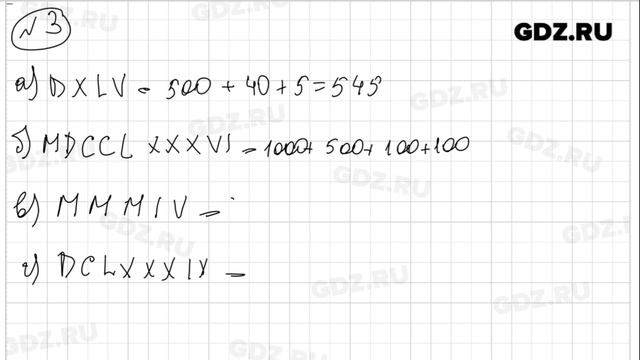 №3
GDZ.RU
а) DXLV = 500 + 40 + 5 = 545
б) MDCCLXXXVI = 1000 + 500 + 100 + 100
в) MMMIV =
г) DCLXXXIX =